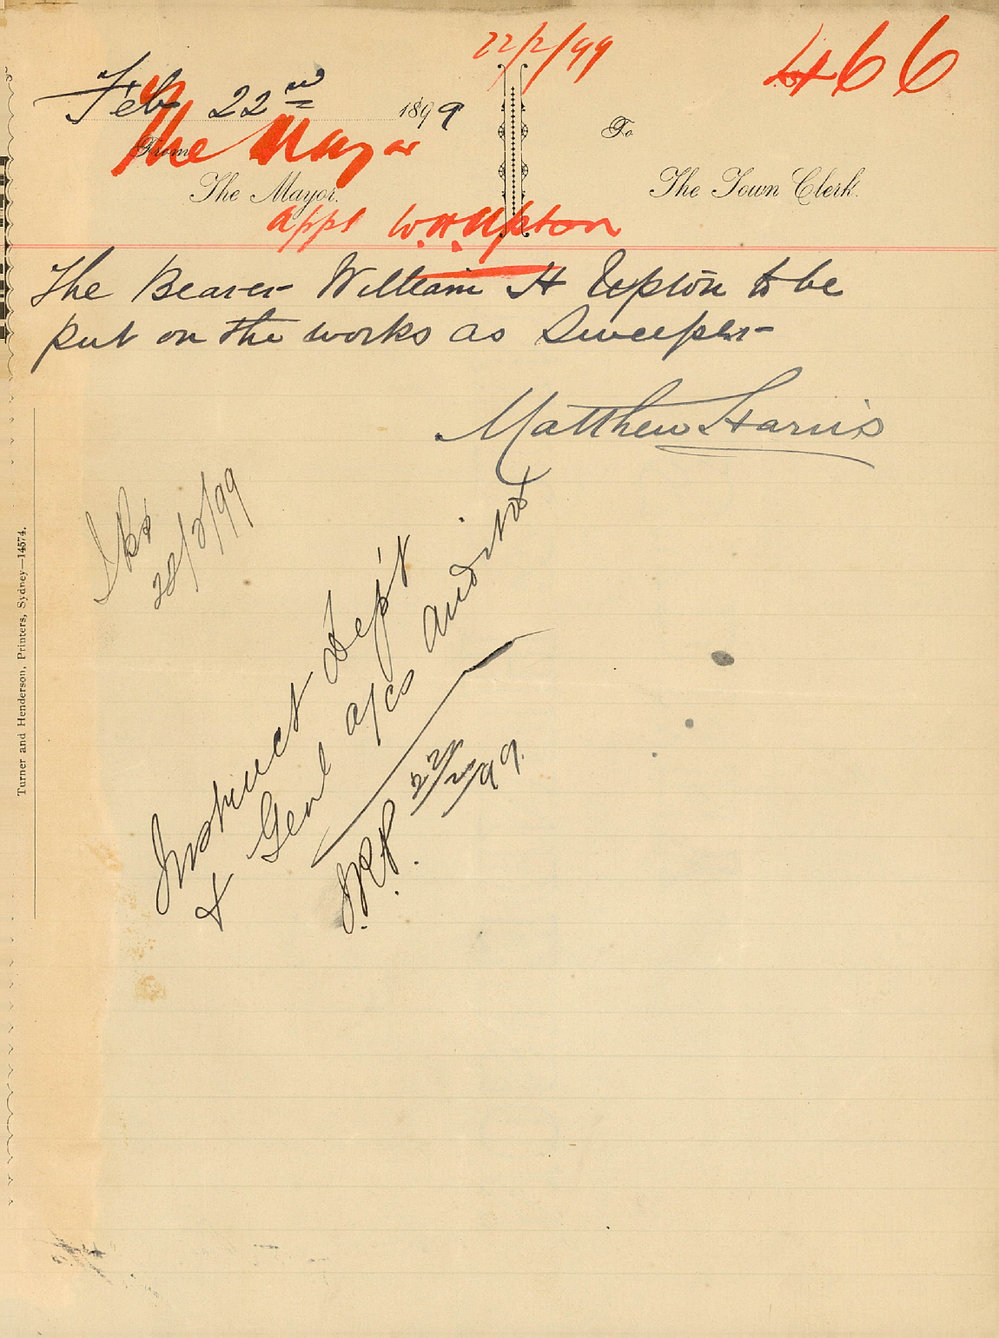 22/2/99
466
Feb 22nd 1899
The Mayor
From
To
The Mayor.
The Town Clerk.
appt W.H. Upton
The Bearer William H Upton to be
put on the works as Sweeper
Matthew Harris
22/2/99
Instruct Dep't
& Genl a/cs auditor
J.R.P. 22/2/99.
Turner and Henderson, Printers, Sydney—14574.